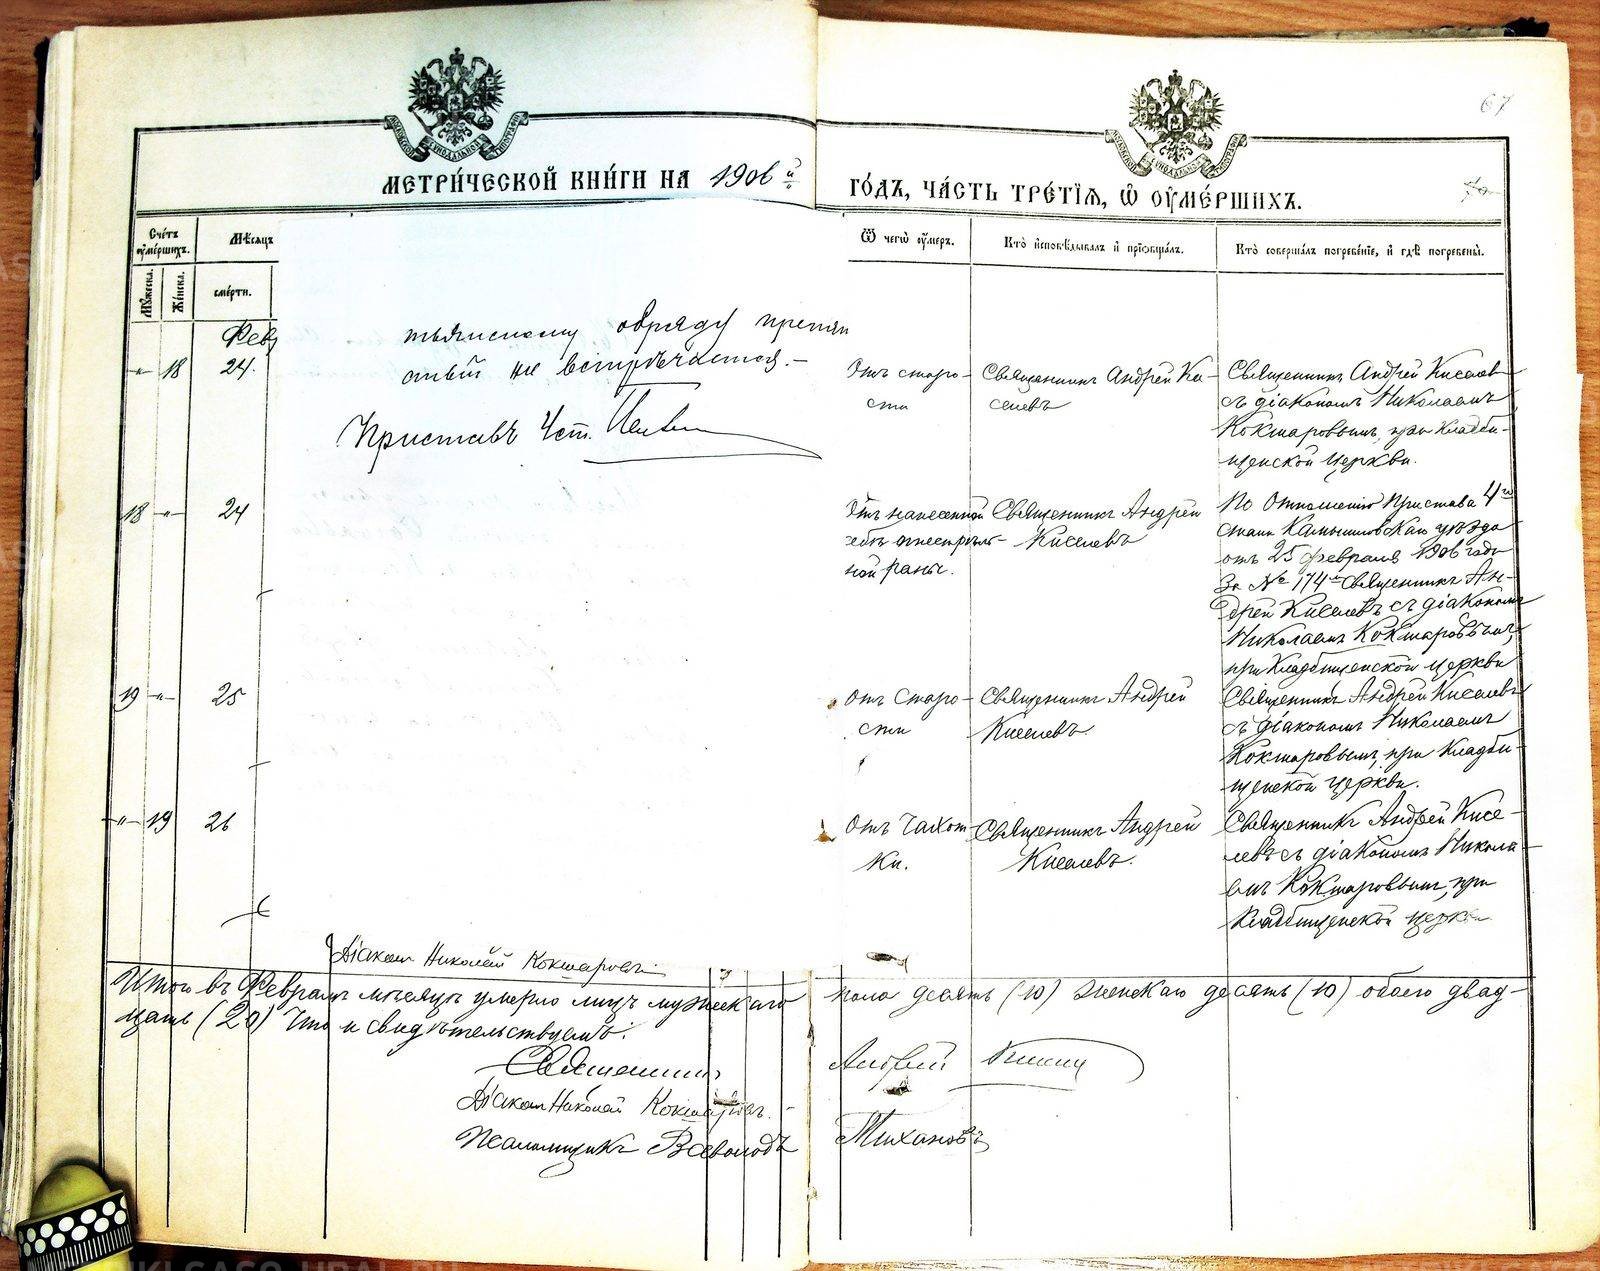 67
МЕТРИ́ЧЕСКОЙ КНИ́ГИ НА 1906 й
ГО́ДЪ, ЧА́СТЬ ТРЕ́ТІЯ, Ѿ ОУ҆МЕ́РШИХЪ.
Сче́тъ оу҆ме́ршихъ.
Му́жеска.
Же́нска.
Мѣ́сяцъ
сме́рти.
Ѿ чегѡ̀ оу҆́меръ.
Кто̀ и҆сповѣ́дывалъ и҆ прїѡбща́лъ.
Кто̀ соверша́лъ погребе́нїе, и҆ гдѣ̀ погребены̀.
тьянскому обряду препят
ствій не встрѣчается.-
Приставъ 4 ст.
Фев
-"- 18 24.
Отъ старо-
сти
Священникъ Андрей Ки-
селевъ
Священникъ Андрей Киселев
съ діакономъ Николаемъ
Кокшаровымъ, при Кладби-
щенской церкви.
18 -"- 24
Отъ нанесенной
себѣ огнестрѣль-
ной раны.
Священникъ Андрей
Киселевъ
По Отношенію Пристава 4го
стана Камышловскаго уѣзда
отъ 25 февраля 1906 года
За № 174 Священникъ Ан-
дрей Киселевъ съ діакономъ
Николаемъ Кокшаровымъ,
при Кладбищенской церкви
19 -"- 25
Отъ Старо-
сти
Священникъ Андрей
Киселевъ
Священникъ Андрей Киселевъ
съ діакономъ Николаемъ
Кокшаровымъ, при Кладби-
щенской церкви.
-"- 19 26
Отъ Чахот-
ки.
Священникъ Андрей
Киселевъ.
Священникъ Андрей Кисе-
левъ съ діакономъ Никола-
емъ Кокшаровымъ, при
Кладбищенской церкви
Діаконъ Николай Кокшаровъ
Итого въ Февралѣ мѣсяцѣ умерло лицъ мужескаго пола десять (10) женскаго десять (10) обоего двад-
цать (20) Что и свидѣтельствуемъ:
Священникъ Андрей
Діаконъ Николай Кокшаровъ.-
Псаломщикъ Всеволодъ Тихановъ